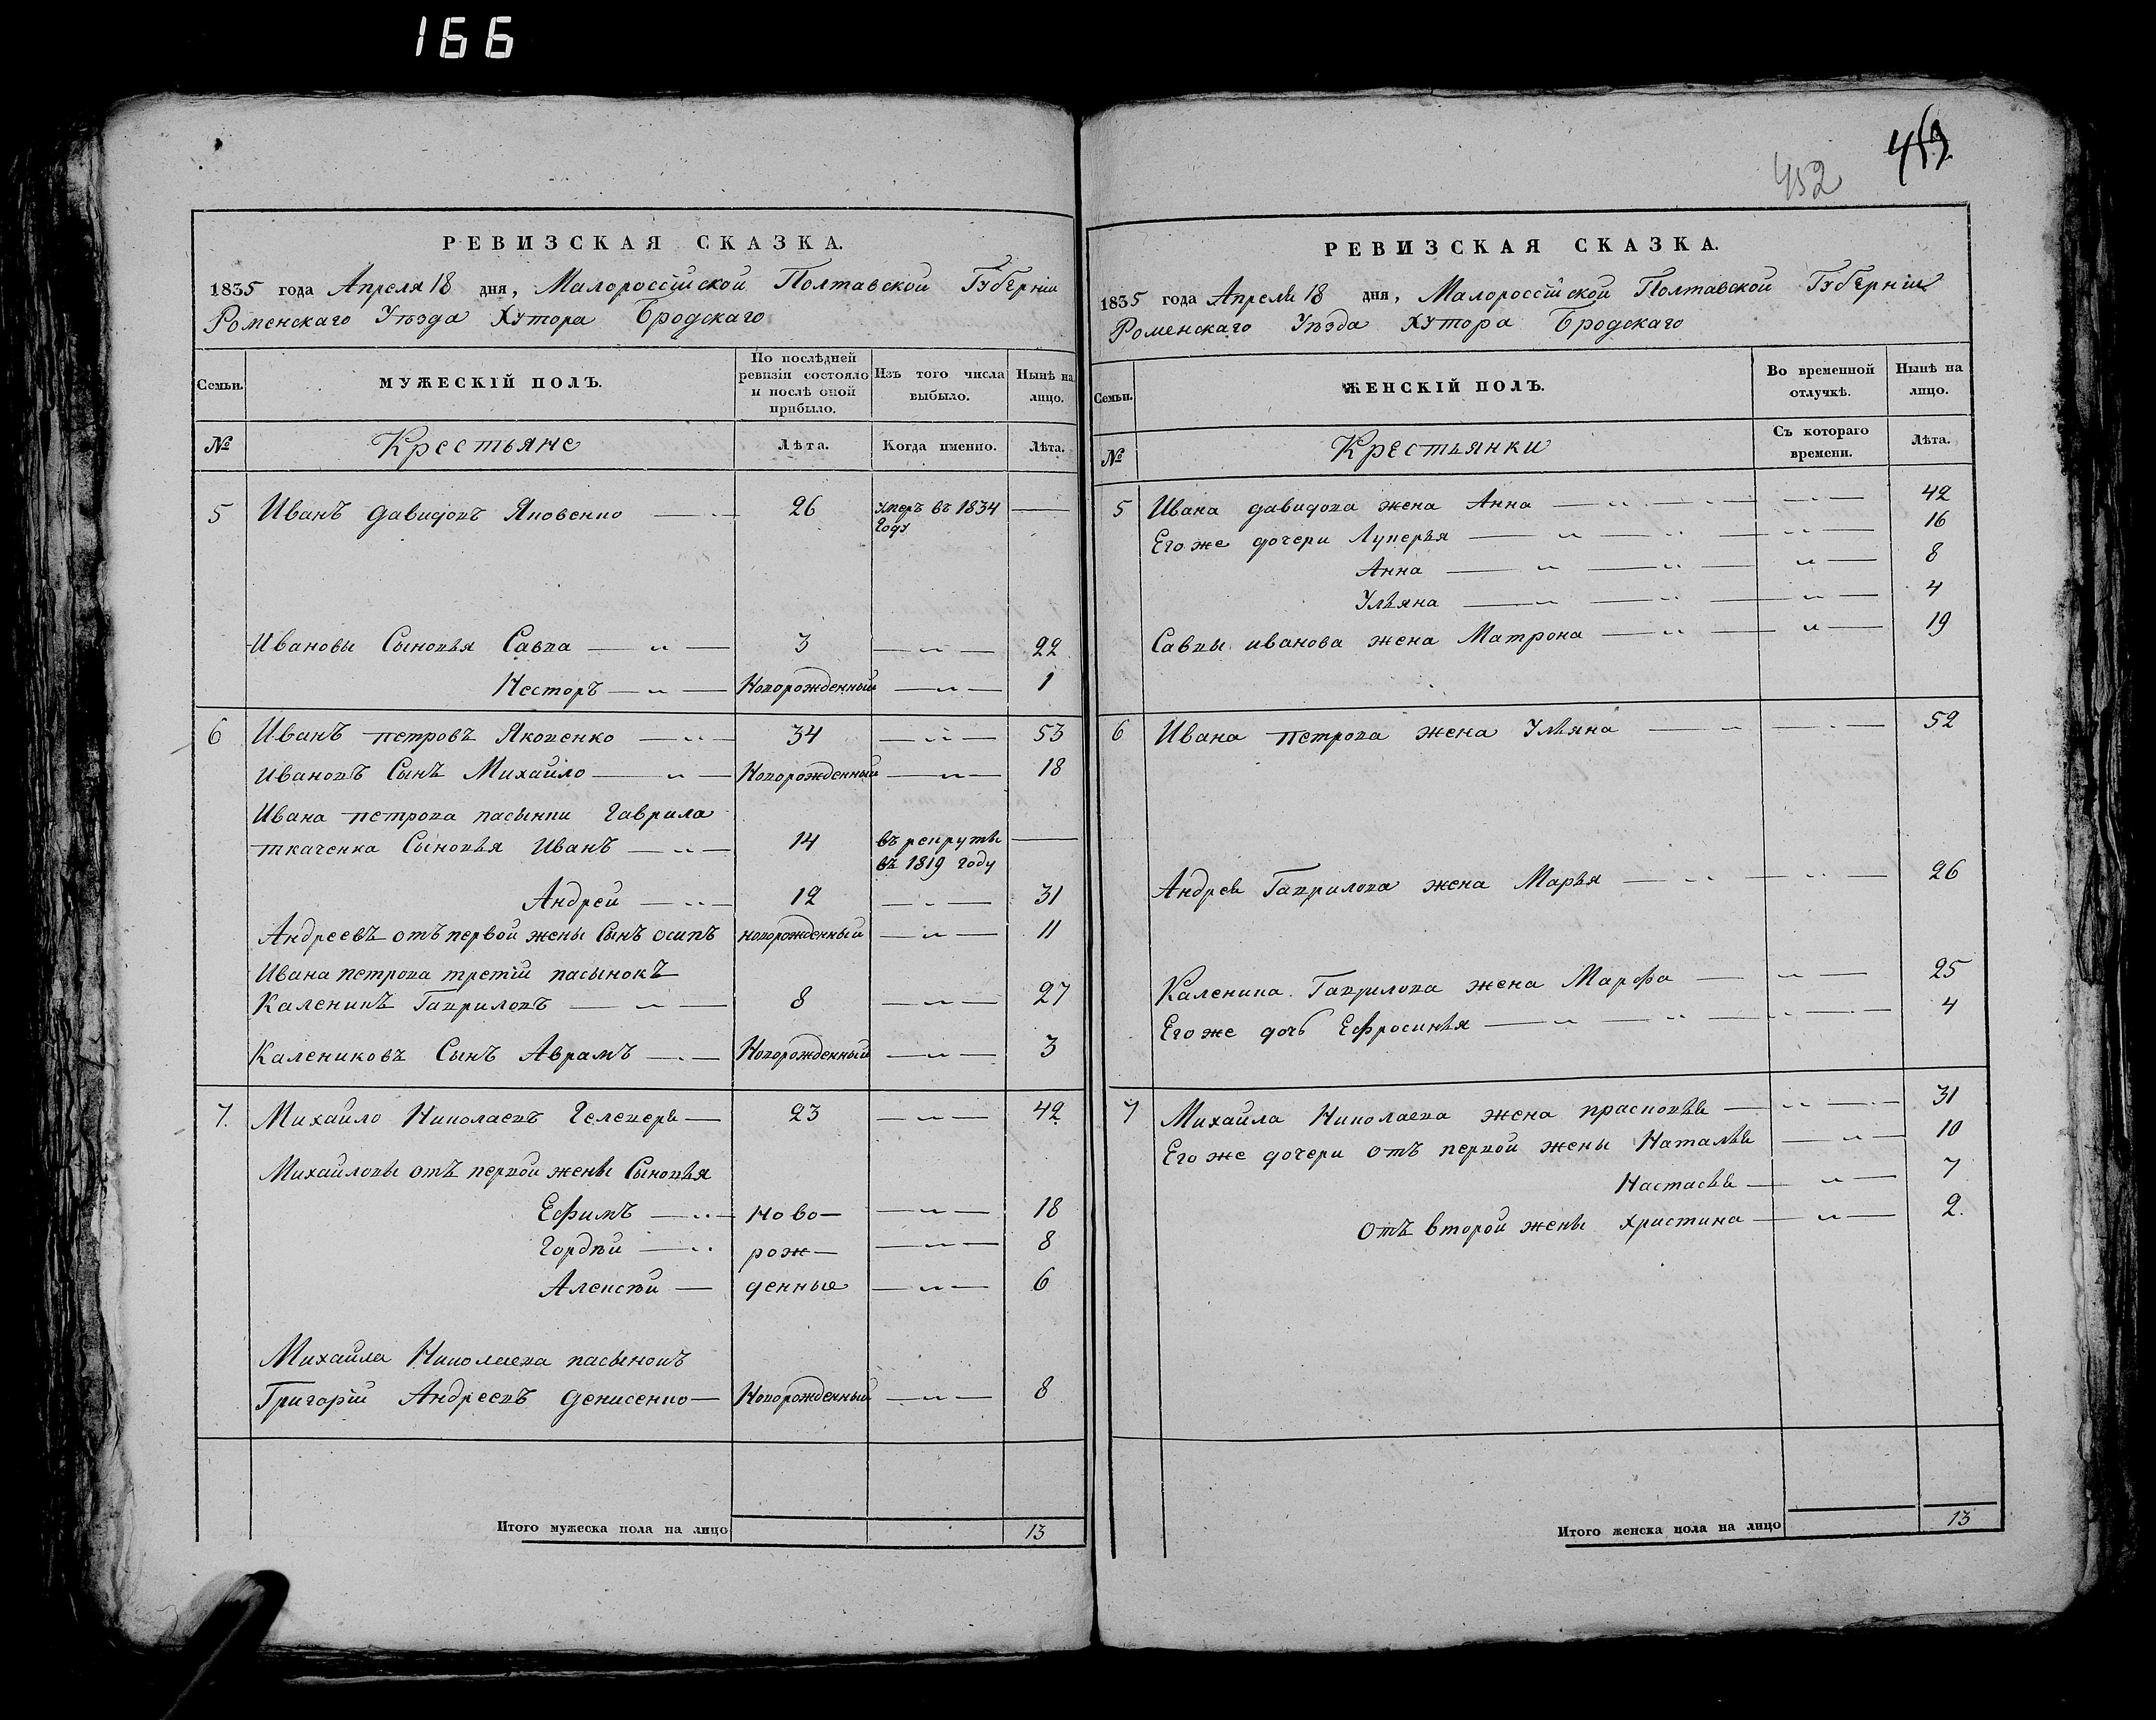 166
РЕВИЗСКАЯ СКАЗКА.
1835 года Апреля 18 дня, Малороссійской Полтавской Губерніи
Роменскаго Уѣзда Хутора Бродскаго
Семьи.
МУЖЕСКІЙ ПОЛЪ.
По послѣдней
ревизіи состояло
и послѣ оной
прибыло.
Изъ того числа
выбыло.
Нынѣ на
лицо.
№
Крестьяне
Лѣта.
Когда именно.
Лѣта.
5 Иванъ Давидовъ Яковенко 26 умеръ въ 1834
году
Ивановы Сыновья Савва 3 22
Несторъ Новорожденный 1
6 Иванъ петровъ Яковенко 34 53
Ивановъ Сынъ Михайло Новорожденный 18
Ивана петрова пасынки Гаврила
ткаченка Сыновья Иванъ 14 въ рекруты
въ 1819 году
Андрей 12 31
Андреевъ отъ первой жены Сынъ осипъ новорожденный 11
Ивана петрова третій пасынокъ
Каленикъ Гавриловъ 8 27
Калениковъ Сынъ Аврамъ Новорожденный 3
7. Михайло Николаевъ 23 42
Михайловы отъ первой жены Сыновья
Ефимъ ново- 18
Гордѣй рож- 8
Алексѣй денные 6
Михайла Николаева пасынокъ
Григорій Андреевъ Денисенко Новорожденный 8
Итого мужеска пола на лицо 13
452
РЕВИЗСКАЯ СКАЗКА.
1835 года Апреля 18 дня, Малороссійской Полтавской Губерніи
Роменскаго Уѣзда Хутора Бродскаго
Семьи.
ЖЕНСКІЙ ПОЛЪ.
Во временной
отлучкѣ.
Нынѣ на
лицо.
№
Крестьянки
Съ котораго
времени.
Лѣта.
5 Ивана давидова жена Анна 42
Его же дочери Лукерья 16
Анна 8
Ульяна 4
Саввы иванова жена Матрона 19
6 Ивана петрова жена Ульяна 52
Андрея Гаврилова жена Марья 26
Каленика Гаврилова жена Марфа 25
Его же дочь Ефросинья 4
7 Михайла Николаева жена прасковья 31
Его же дочери отъ первой жены Наталья 10
Настасья 7
отъ второй жены христина 2.
Итого женска пола на лицо 13